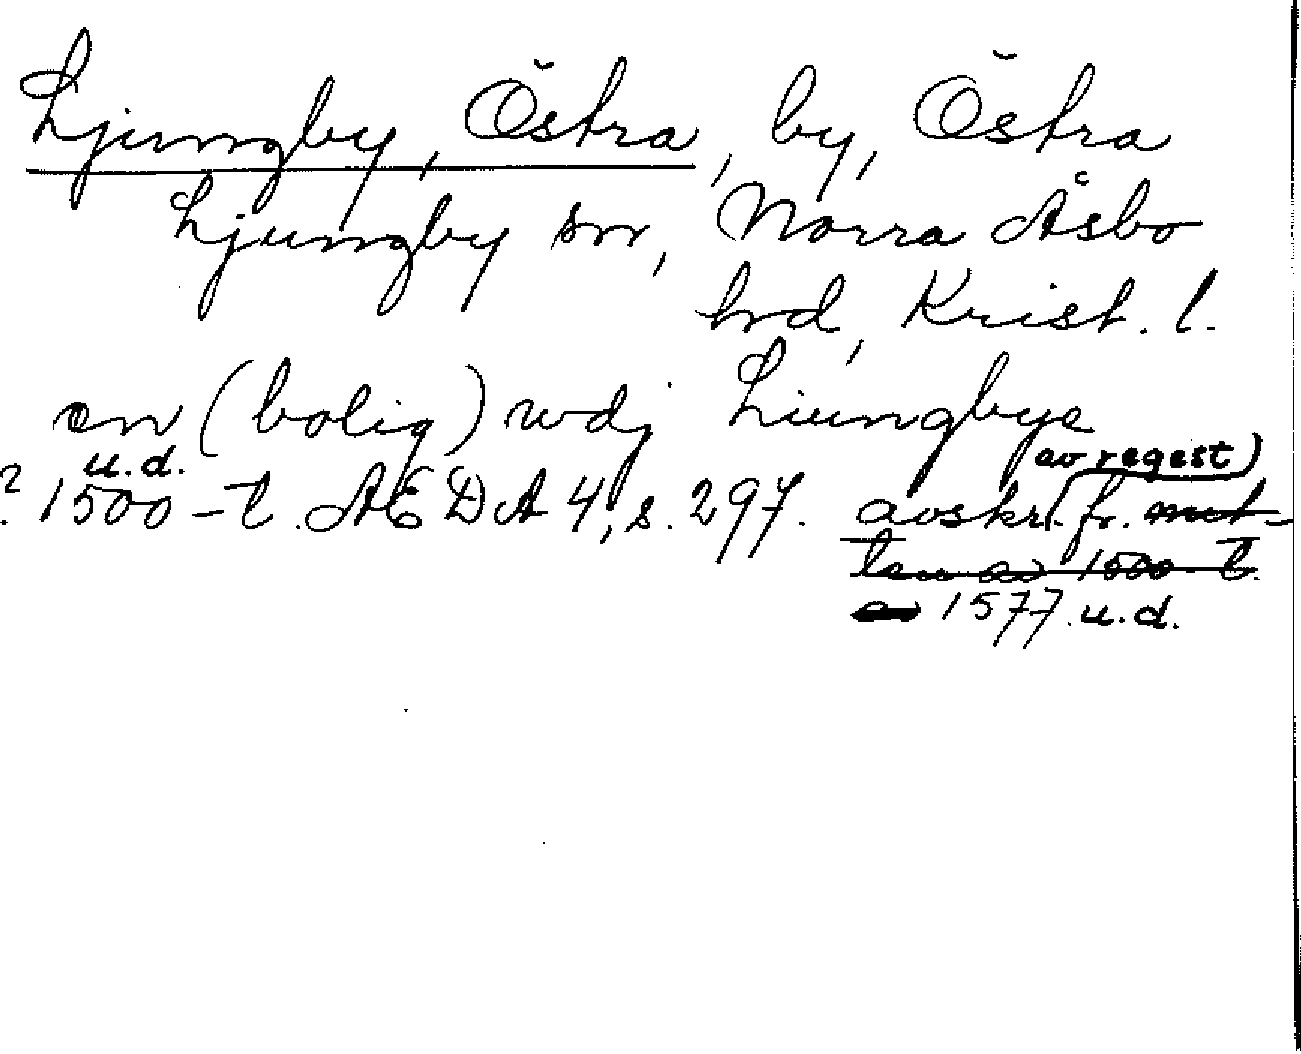 Ljungby, Östra, by, Östra
Ljungby sn, Norra Åsbo
hrd, Krist. l.
en (bolig) wdj Liungbye
u.d. av regest)
? 1500-t. AEDA 4, s. 297. avskr. fr. mit-
ten av 1500-t.
1577. u.d.